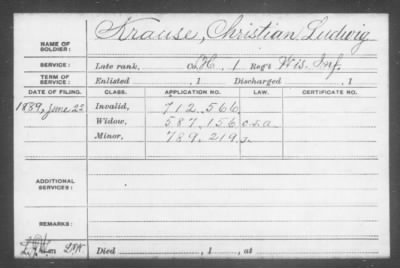 NAME OF SOLDIER: Krause, Christian Ludwig
SERVICE: Late rank, Co. H, 1 Reg't Wis. Inf.
TERM OF SERVICE: Enlisted , 1 Discharged , 1
DATE OF FILING. CLASS. APPLICATION NO. LAW. CERTIFICATE NO.
1889, June 22 Invalid, 712.566
Widow, 587.156 c.s.a.
Minor, 789.219
ADDITIONAL SERVICES:
REMARKS:
Died , 1 , at